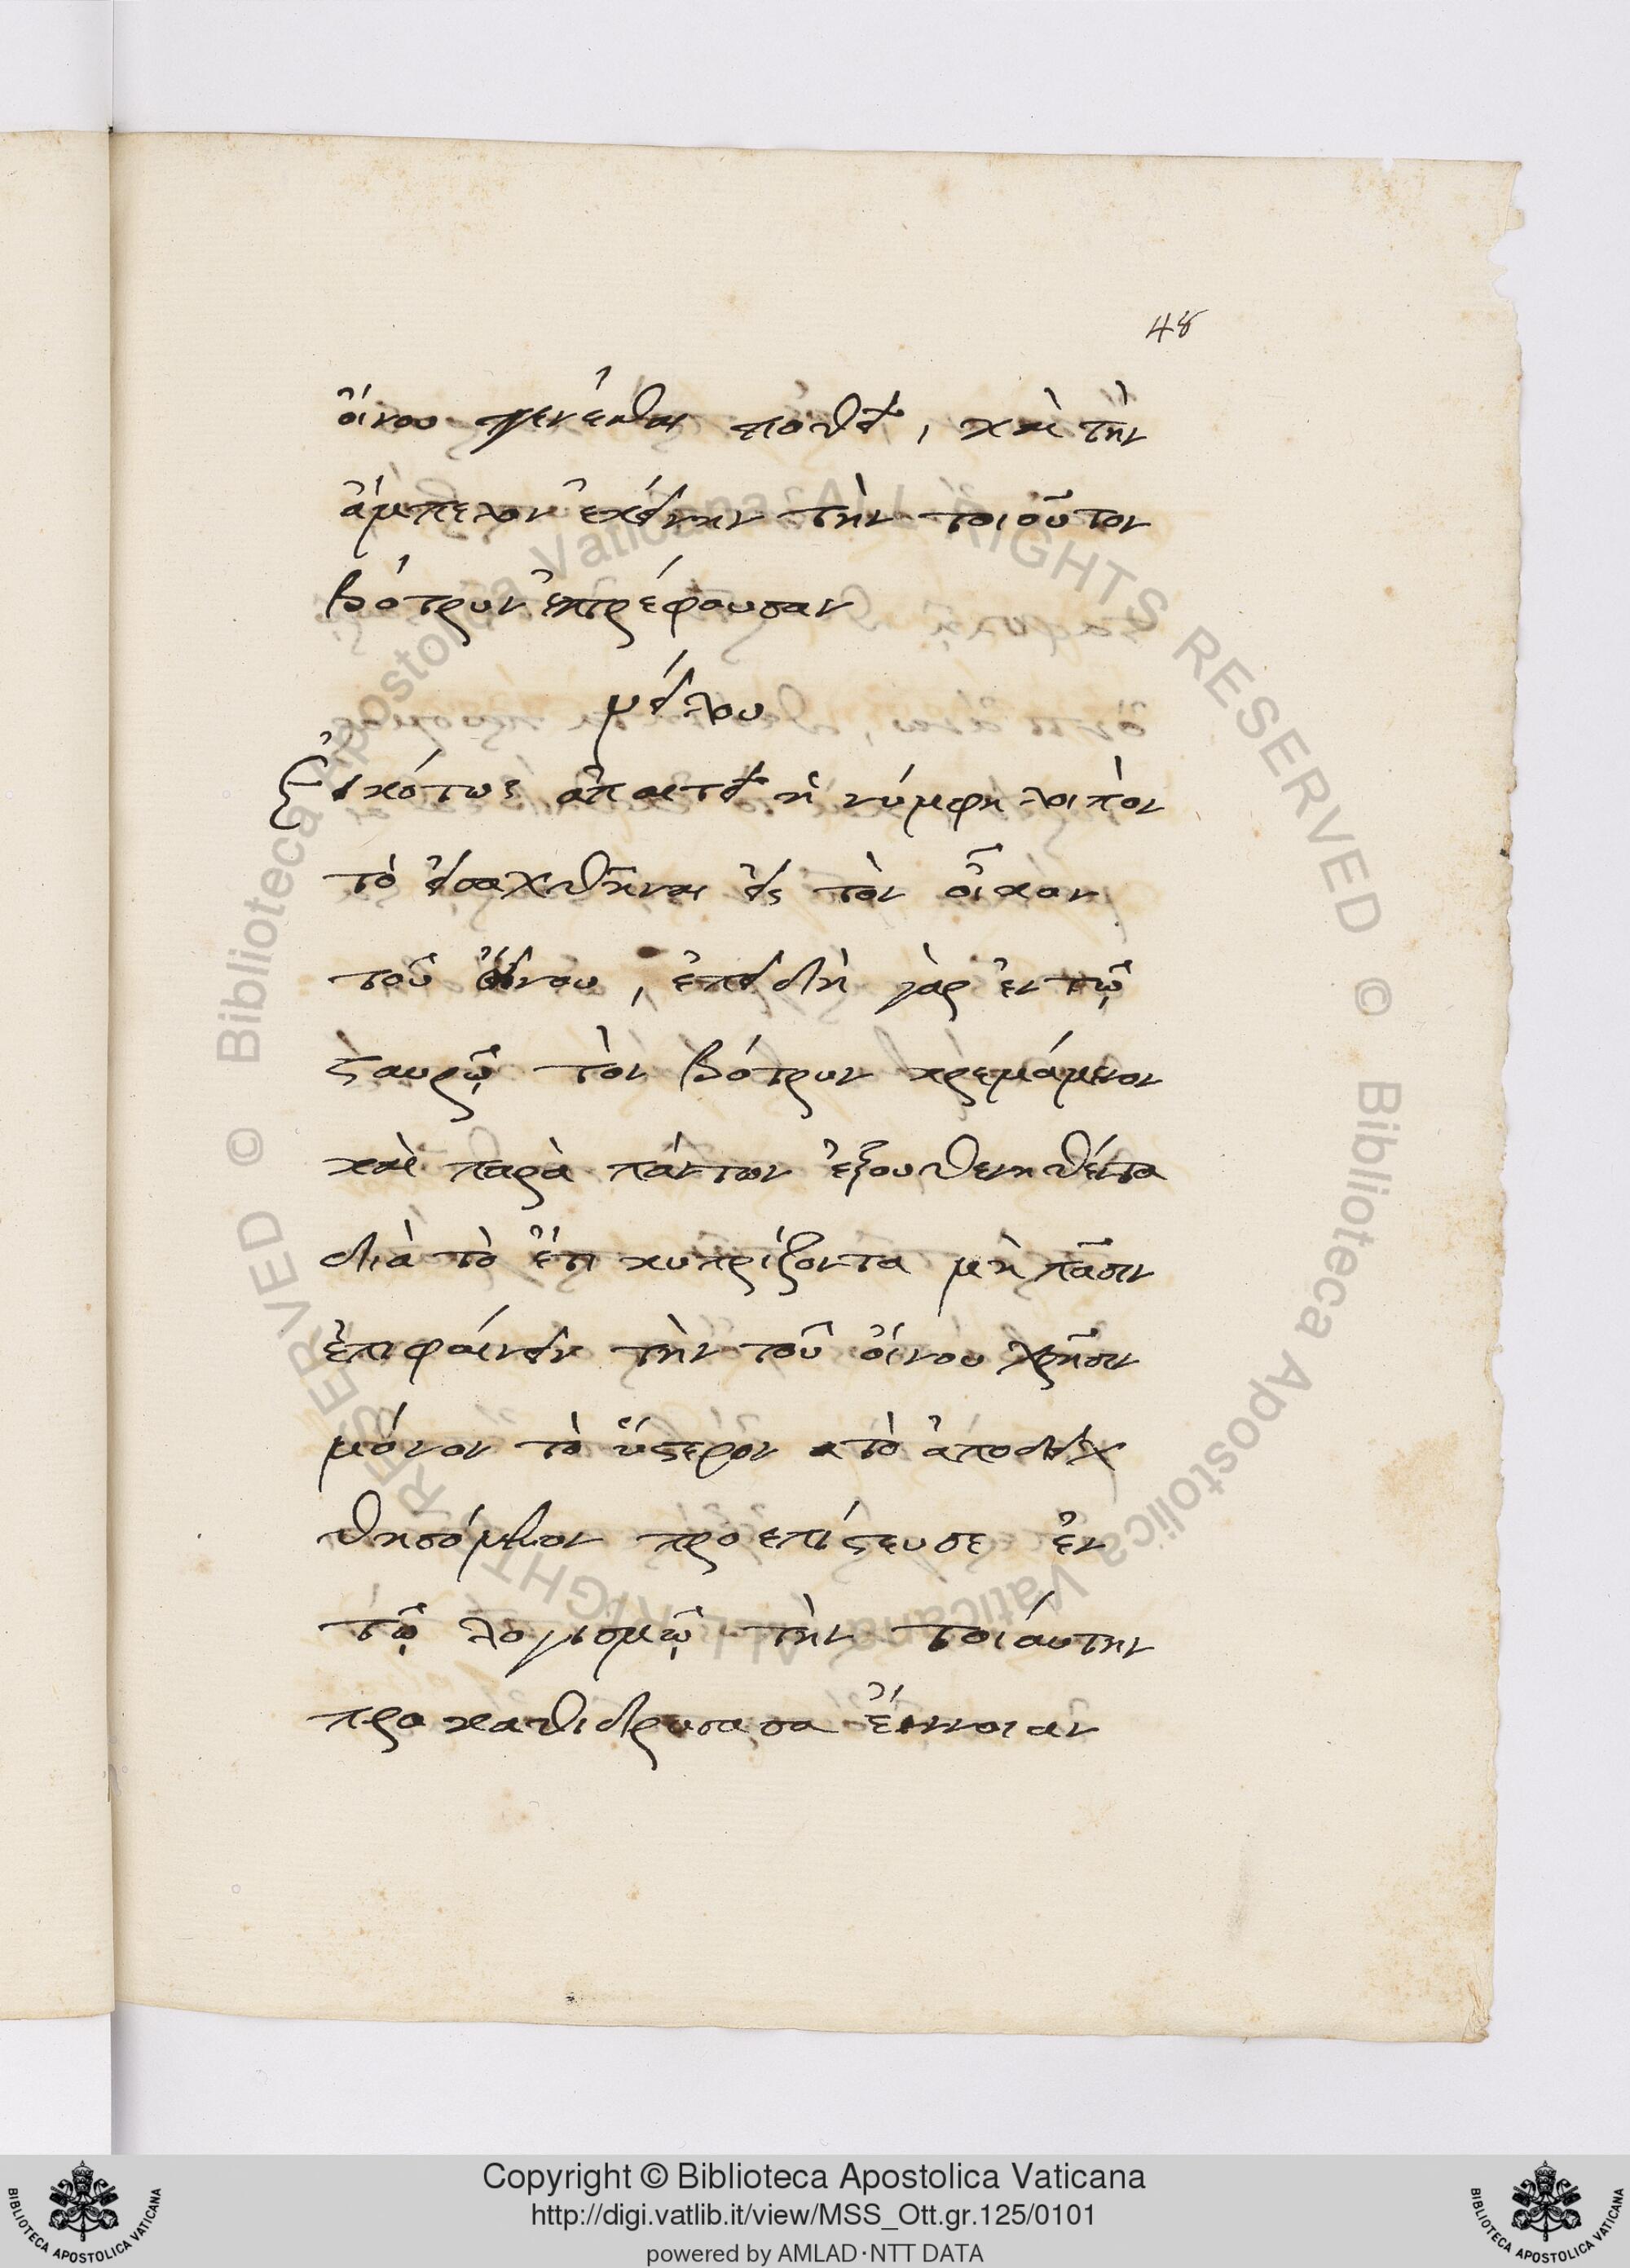 48
οἴνου γενέσθαι ποθεῖ, καὶ τὴν
ἄμπελον ἐκείνην τὴν τοιοῦτον
βότρυν ἐκτρέφουσαν
Νείλου
Εἰκότως ἀπαιτεῖ ἡ νύμφη λοιπὸν
τὸ εἰσαχθῆναι εἰς τὸν οἶκον
τοῦ οἴνου, ἐπειδὴ γὰρ ἐν τῷ
σταυρῷ τὸν βότρυν κρεμάμενον
καὶ παρὰ πάντων ἐξουθενηθέντα
διὰ τὸ ἔτι κυπρίζοντα μὴ πᾶσιν
ἐπιφαίνειν τὴν τοῦ οἴνου χρῆσιν
μόνον τὸ ὕστερον τὸ ἀποδειχ
θησόμενον προεπίστευσε ἐν
τῷ λογισμῷ τὴν τοιάυτην
προκαθιδρυσασα ἔννοιαν
Copyright © Biblioteca Apostolica Vaticana
http://digi.vatlib.it/view/MSS_Ott.gr.125/0101
powered by AMLAD·NTT DATA
BIBLIOTECA APOSTOLICA VATICANA
BIBLIOTECA APOSTOLICA VATICANA
© Biblioteca Apostolica Vaticana ALL RIGHTS RESERVED © Biblioteca Apostolica Vaticana ALL RIGHTS RESERVED